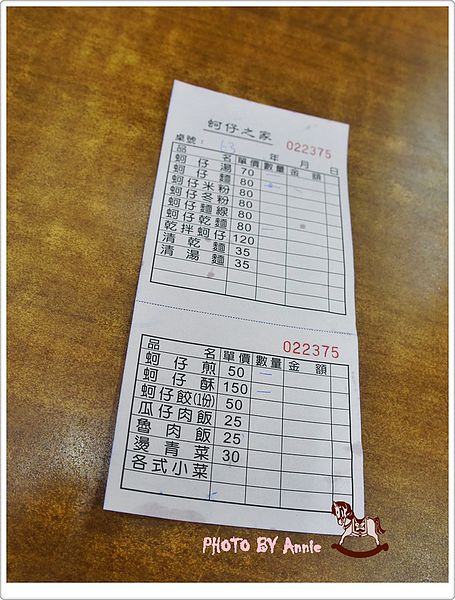 蚵仔之家
桌號： 63 年 月 日 022375
品 名 單價 數量 金 額
蚵仔湯 70
蚵仔麵 80
蚵仔米粉 80
蚵仔冬粉 80
蚵仔麵線 80
蚵仔乾麵 80
乾拌蚵仔 120
清乾麵 35
清湯麵 35
022375
品 名 單價 數量 金 額
蚵仔煎 50
蚵仔酥 150
蚵仔餃(1份) 50
瓜仔肉飯 25
魯肉飯 25
燙青菜 30
各式小菜
PHOTO BY Annie